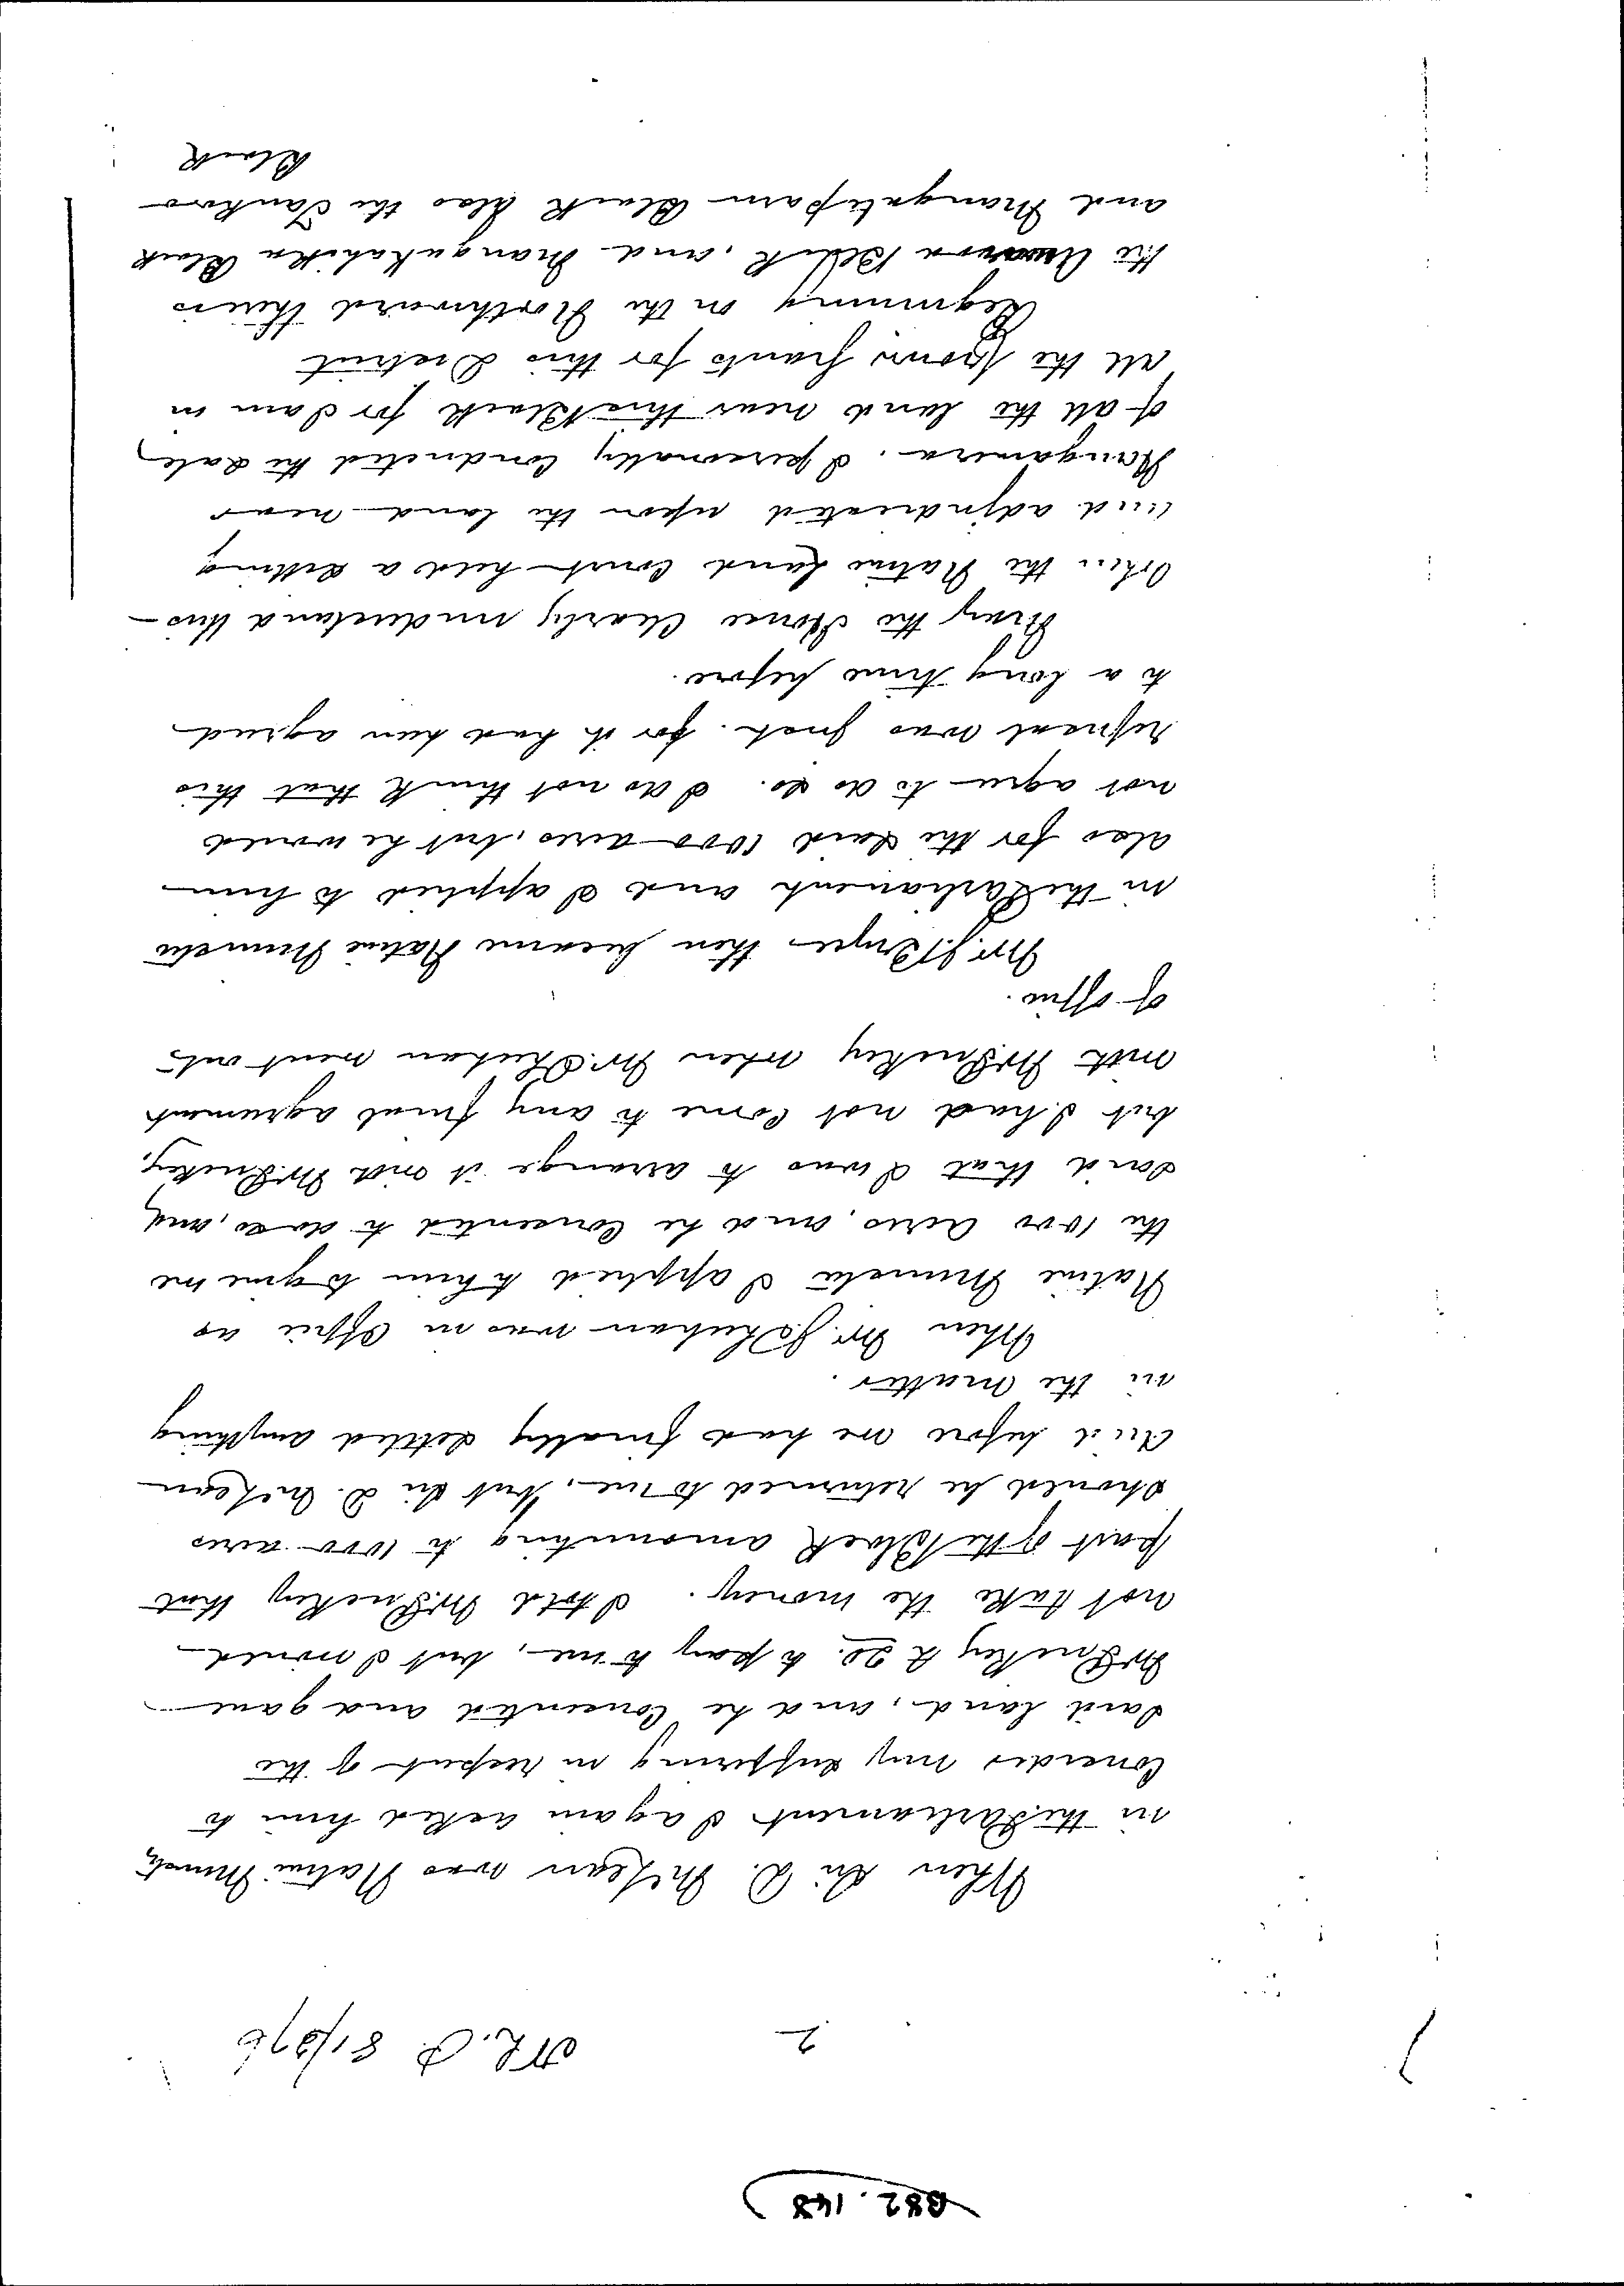 B82.148
2
NL.P 81/276
When Sir D. McLean was Native Minister
in the Parliament I again asked him to
consider my suffering in respect of the
said land, and he consented and gave
Mr. Puckey £20. to pay to me, but I would
not take the money. I told Mr. Puckey that
part of the Block amounting to 1000 acres
should be returned to me, but Sir D. McLean
died before we had finally settled anything
in the matter.
When Mr. J. Sheehan was in Office as
Native Minister I applied to him to give me
the 1000 acres, and he consented to do so, and
said that I was to arrange it with Mr. Puckey,
but I had not come to any final agreement
with Mr. Puckey when Mr. Sheehan went out
of office.
Mr. J. Bryce then became Native Minister
in the Parliament and I applied to him
also for the said 1000 acres, but he would
not agree to do so. I do not think that this
refusal was just. for it had been agreed
to a long time before.
May the House clearly understand this
When the Native Land Court held a sitting
and adjudicated upon the land near
I personally conducted the sale
of all the land near this Block for I am in
all the Crown grants for this District
Beginning on the Northward there is
the Block, and Mangakahika Block
and Mangatiparu Block also the
Block